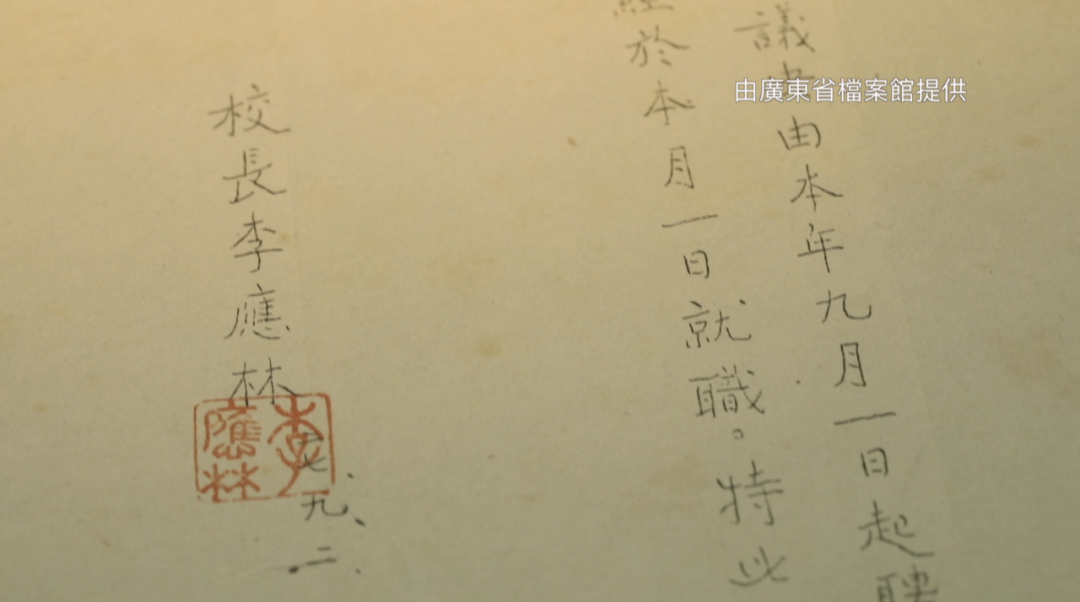 由廣東省檔案館提供
議
由本年九月一日起聘
經於本月一日就職。特此
校長李應林
李應林
七、九、二.